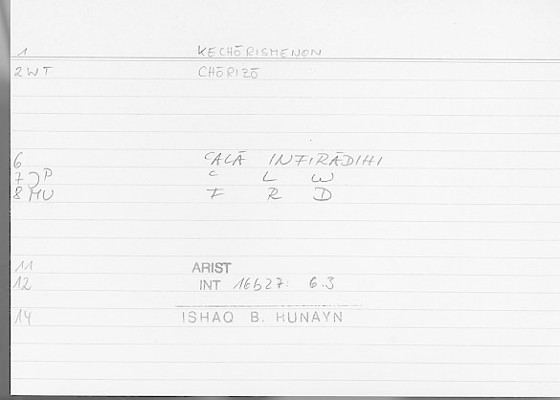 1 KECHŌRISMENON
2 WT CHŌRIZŌ
6 ʿALĀ INFIRĀDIHI
7 JP ʿ L W
8 MU F R D
11 ARIST
12 INT 16b27: 6.3
14 ISHAQ B. HUNAYN